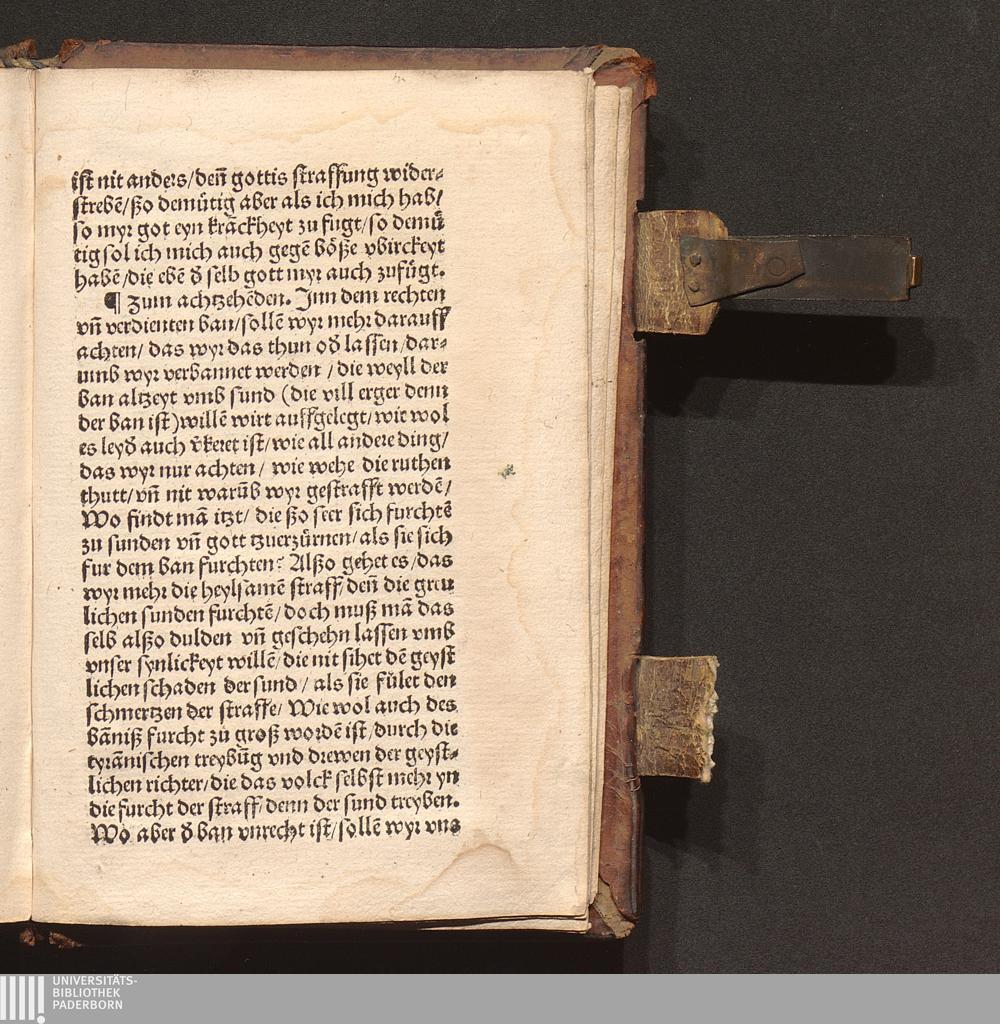 ist nit anders/deñ gottis straffung wider⸗
strebẽ/ßo demütig aber als ich mich hab/
so myr got eyn krãckheyt zu fugt/so demü
tig sol ich mich auch gegẽ bôße vbirckeyt
habẽ/die ebẽ d̄ selb gott myr auch zufügt.
¶ Zum achtzehẽden. Jnn dem rechten
vñ verdienten ban/sollẽ wyr mehr darauff
achten/ das wyr das thun od̄ lassen/dar⸗
umb wyr verbannet werden / die weyll der
ban altzeyt vmb sund (die vill erger denn
der ban ist)willẽ wirt auffgelegt/wie wol
es leyd̄ auch v̈keret ist/wie all andere ding/
das wyr nur achten / wie wehe die ruthen
thutt/vñ nit warũb wyr gestrafft werdẽ/
Wo findt mã itzt/ die ßo seer sich furchtẽ
zu sunden vñ gott tzuerzürnen/als sie sich
fur dem ban furchten? Alßo gehet es/das
wyr mehr die heylsamẽ straff/deñ die greu
lichen sunden furchtẽ/doch muß mã das
selb alßo dulden vñ geschehn lassen vmb
vnser synlickeyt willẽ/die nit sihet dẽ geyst
lichen schaden der sund/ als sie fület den
schmertzen der straffe/ Wie wol auch des
bãniß furcht zů groß wordẽ ist/durch die
tyrãnischen treybũg vnd drewen der geyst⸗
lichen richter/die das volck selbst mehr yn
die furcht der straff/denn der sund treyben.
Wo aber d̄ ban vnrecht ist/sollẽ wyr vns
UNIVERSITÄTS-
BIBLIOTHEK
PADERBORN